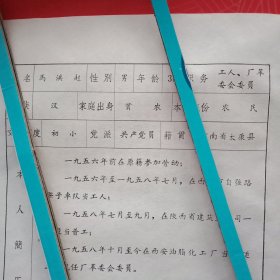 名 馮洪起 性别 男 年齡 3 职务 工人。厂革委会委员
族 汉 家庭出身 貧农 本 份 农民
度 初小 党派 共产党员 籍 南省太康县
本人簡
一九五六年前在原籍参加劳动；
一九五六年至一九五八年七月，在西 市自强路
车队当工人；
一九五八年七月至九月，在陕西省建筑 司一
当普工；
一九五八年十月至今在西安油脂化工厂当
任厂革委会委员。